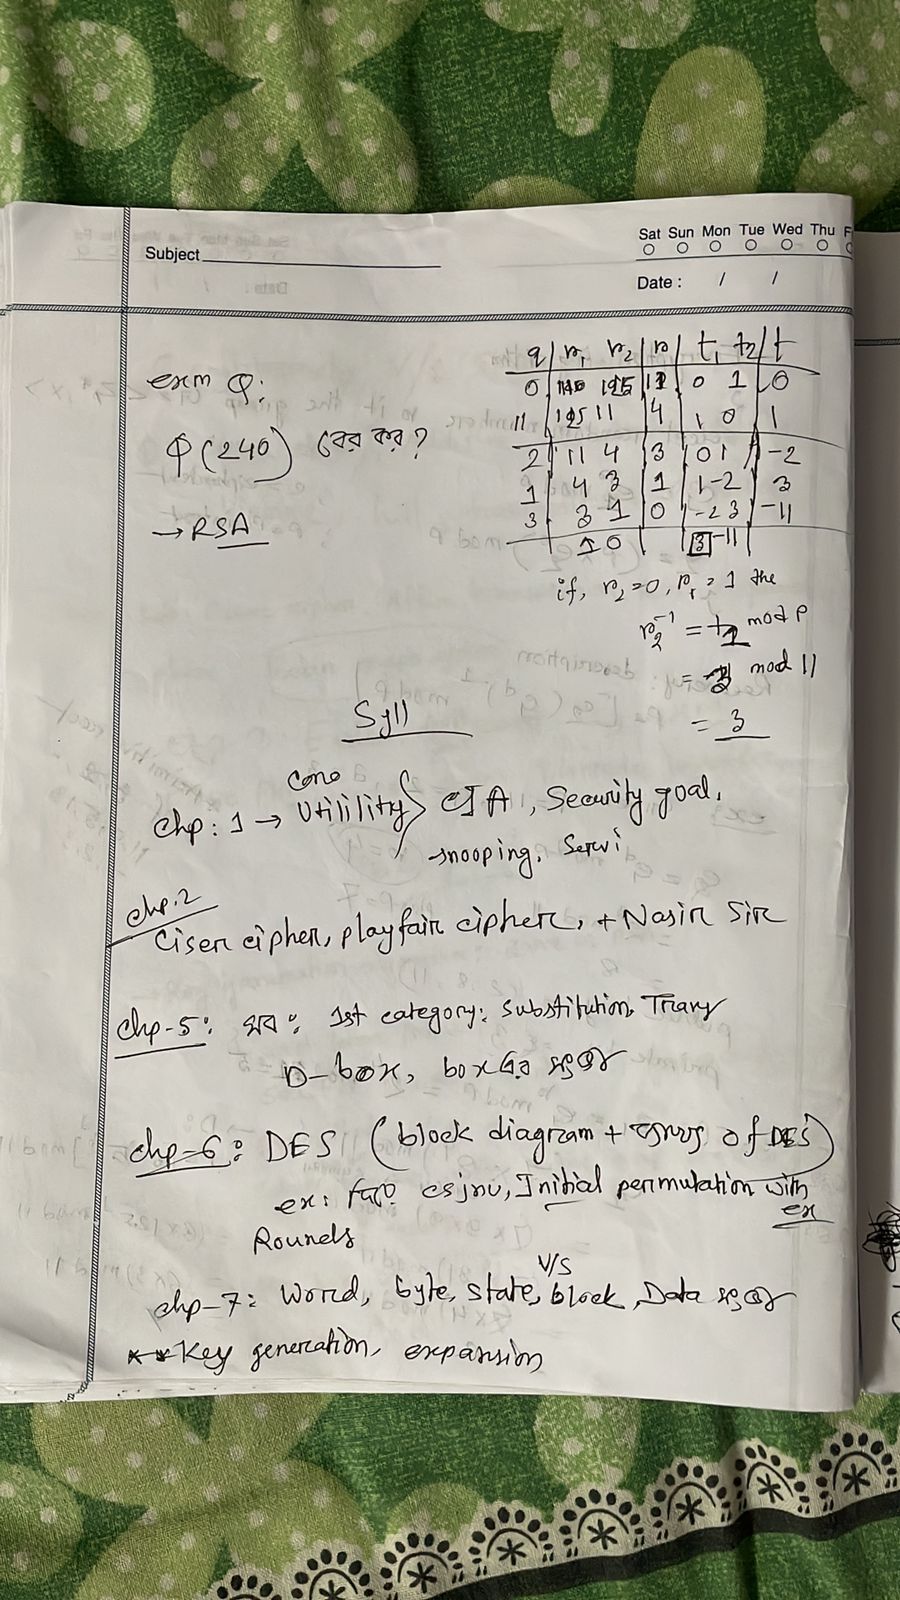 Subject
Sat Sun Mon Tue Wed Thu F
Date : / /
exm Q:
Φ(240) বের কর ?
→ RSA
q | r₁ r₂ | r | t₁ t₂ | t
0 0 1 0
11 125 11 4 1 0 1
2 11 4 3 0 1 -2
1 4 3 1 1 -2 3
3 3 1 0 -2 3 -11
1 0 3 -11
if, r₂=0, r₁=1 the
r₂⁻¹ = t₁ mod P
= 3 mod 11
= 3
Syll
Chp: 1 → Utility CIA, Security goal,
snooping, Servi
chp.2
Ciser cipher, playfair cipher, + Nasir Sir
chp-5: সব: 1st category: substitution,
D-box, box এর
chp-6: DES (block diagram + of DES)
ex: csjnu, Initial permutation with
ex
Rounds
V/S
chp-7: Word, byte, state, block, Data
** Key generation, expansion